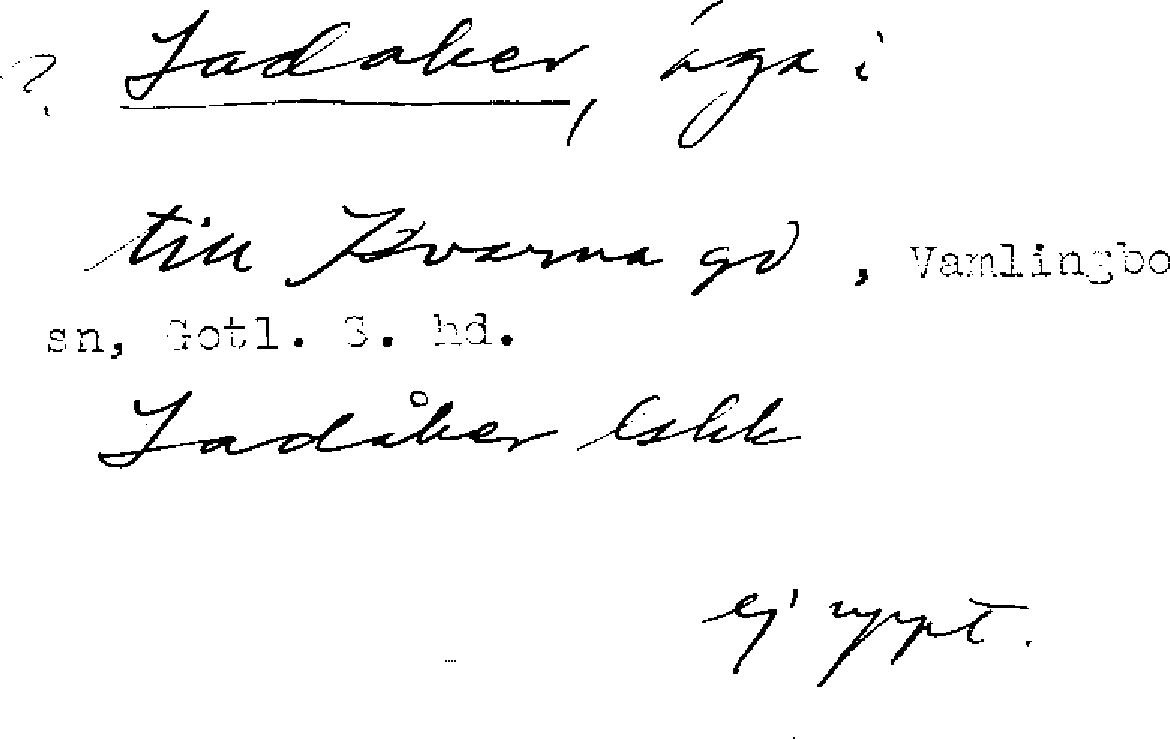 ? Ladaker, äga i
till Kvarna gd, Vamlingbo
sn, Gotl. S. hd.
Ladåker Eskk
ej uppt.